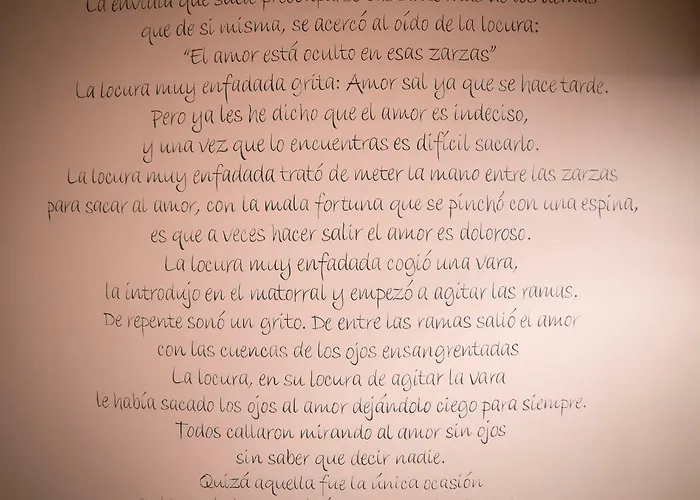 La envidia que suele preocuparse bastante más de los demás
que de si misma, se acercó al oído de la locura:
“El amor está oculto en esas zarzas”
La locura muy enfadada grita: Amor sal ya que se hace tarde.
Pero ya les he dicho que el amor es indeciso,
y una vez que lo encuentras es difícil sacarlo.
La locura muy enfadada trató de meter la mano entre las zarzas
para sacar al amor, con la mala fortuna que se pinchó con una espina,
es que a veces hacer salir el amor es doloroso.
La locura muy enfadada cogió una vara,
la introdujo en el matorral y empezó a agitar las ramas.
De repente sonó un grito. De entre las ramas salió el amor
con las cuencas de los ojos ensangrentadas
La locura, en su locura de agitar la vara
le había sacado los ojos al amor dejándolo ciego para siempre.
Todos callaron mirando al amor sin ojos
sin saber que decir nadie.
Quizá aquella fue la única ocasión